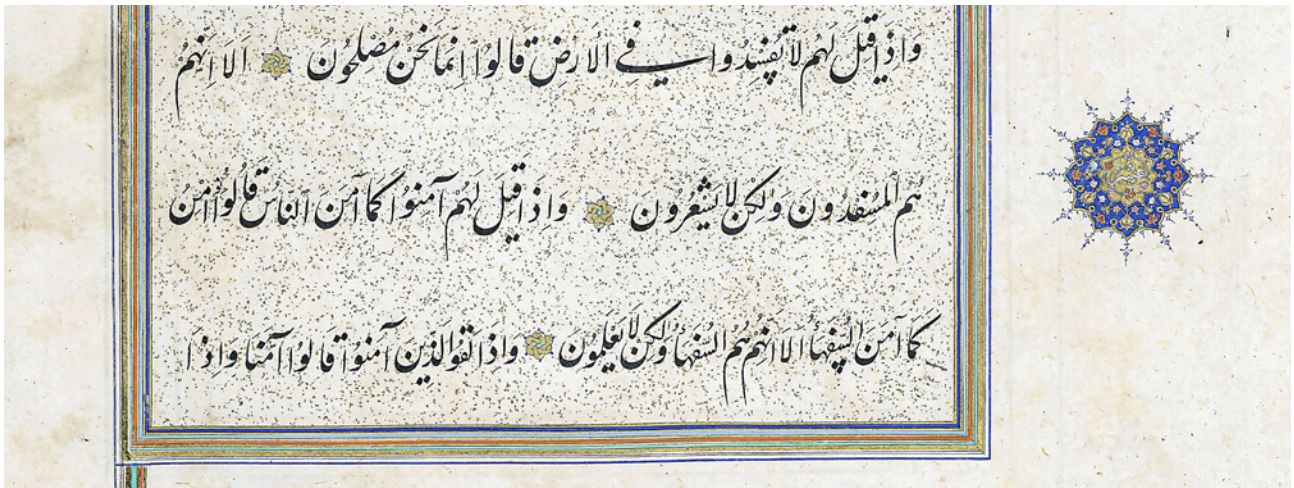 وَاِذَا قِيلَ لَهُم لَا تُفْسِدُوا فِي الْاَرْضِ قَالُوا اِنَّمَا نَحْنُ مُصْلِحُونَ اَلَا اِنَّهُمْ
هُم الْمُفْسِدُونَ وَلٰكِنْ لَا يَشْعُرُونَ وَاِذَا قِيلَ لَهُمْ آمَنُوا كَمَا آمَنَ النَّاسُ قَالُوا أَنُؤْمِنُ
كَمَا آمَنَ السُّفَهَاُ اَلَا اِنَّهُمْ هُمُ السُّفَهَاُ وَلٰكِنْ لَا يَعْلَمُونَ وَاِذَا لَقُوا الَّذِينَ آمَنُوا قَالُوا آمَنَّا وَاِذَا